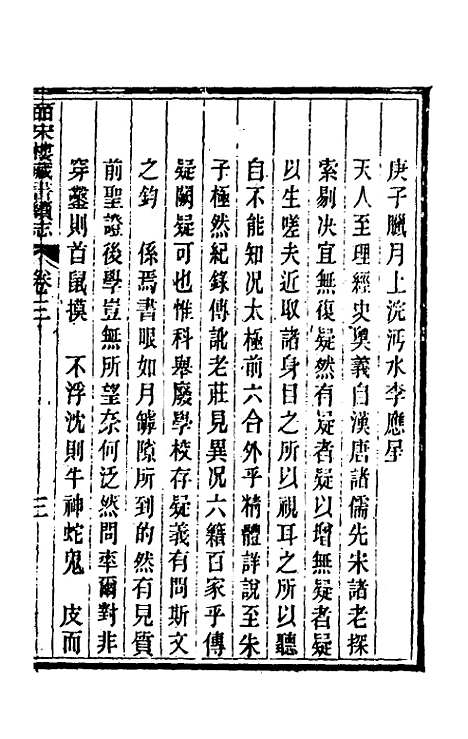 庚子臘月上浣沔水李應星
天人至理經史奧義自漢唐諸儒先宋諸老探
索剔決宜無復疑然有疑者疑以增無疑者疑
以生嗟夫近取諸身目之所以視耳之所以聽
自不能知况太極前六合外乎精體詳說至朱
子極然紀錄傳訛老莊見異况六籍百家乎傳
疑闕疑可也惟科舉廢學校存疑義有問斯文
之鈞 係焉書眼如月罅隙所到的然有見質
前聖證後學豈無所望奈何泛然問率爾對非
穿鑿則首鼠摸 不浮沈則牛神蛇鬼 皮而
皕宋樓藏書續志 卷三
三